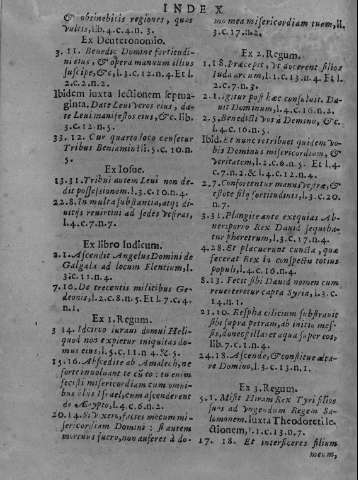 INDEX
& obtinebitis regiones, quas
vultis, lib.4.c.4.n.3.
Ex Deuteronomio.
3. 11. Benedic Domine fortitudini
eius, & opera manuum illius
suscipe, &c, l.3.c.12.n.4. Et l.
2.c.2.n.2.
Ibidem iuxta lectionem septuaginta,
Date Levi veros eius, date
Levi manifestos eius, &c. lib.
3.c.12.n.5.
33.12. Cur quarto loco censetur
Tribus Beniamin l.5.c.10.n.
5.
Ex Iosue.
13.31. Tribui autem Levi non dedit
possessionem. l.3.c.10.n.4.
22.8. In multa substantia, atque divitijs
revertimini ad sedes vestras,
l.4.c.7.n.7.
Ex libro Iudicum.
2.1. Ascendit Angelus Domini de
Galgala ad locum Flentium, l.
3.c.11.n.4.
7.16. De trecentis militibus Gedeonis,
l.2.c.8.n.5. Et l.7.c.4.
n.1.
Ex 1. Regum.
3 14. Idcirco iuravi domui Heli,
quod non expietur iniquitas domus
eius, l.5.c.11.n.4.&5.
15.16. Abscedite ab Amalech, ne
forte involvant te cū eo: tu enim
fecisti misericordiam cum omnibus
filijs Israel, cum ascenderent
de Ægypto, l.4.c.6.n.2.
20.14. Si vixero, facies mecum misericordiam
Domini: si autem
mortuus fuero, non auferes à domo
mea misericordiam tuam, ll.
3.c.17.n.2.
Ex 2. Regum.
1.18. Præcepit, ut docerent filios
Iuda arcum, l.1.c.13.n.4. Et l.
2.c.7.n.3.
2.1. Igitur post hæc consuluit David
Dominum, l.4.c.16.n.2.
2.5. Benedicti vos à Domino, &c.
l.4.c.16.n.5.
Ibid. Et nunc retribuet quidem vobis
Dominus misericordiam, &
veritatem, l.2.c.6.n.5. Et l.4.
c.7.n.2. & l.4.c.12.n.4.
2.7. Confortentur manus vestræ, &
estote filij fortitudinis, l.3.c.20.
n.7.
3.31. Plangite ante exequias Abner,
porro Rex David sequebatur
pheretrum, l.3.c.17.n.4.
4.28. Et placuerunt cuncta, quæ
fecerat Rex in conspectu totius
populi, l.4.c.16.n.4.
8.13. Fecit sibi David nomen cum
reverteretur capta Syria, l.3.c.
14.n.1.
21.10. Respha cilicium substravit
sibi supra petram, ab initio messis,
donec stillaret aqua super eos,
lib.7.c.1.n.4.
24.18. Ascende, & constitue altare
Domino, l.3.c.13.n.1.
Ex 3. Regum.
5.1. Misit Hiram Rex Tyri filios
suos ad Vngendum Regem Salomonem.
Iuxta Theodoreti lectionem,
l.1.c.13.n.7.
17. 18. Et interficeres filium
meum,